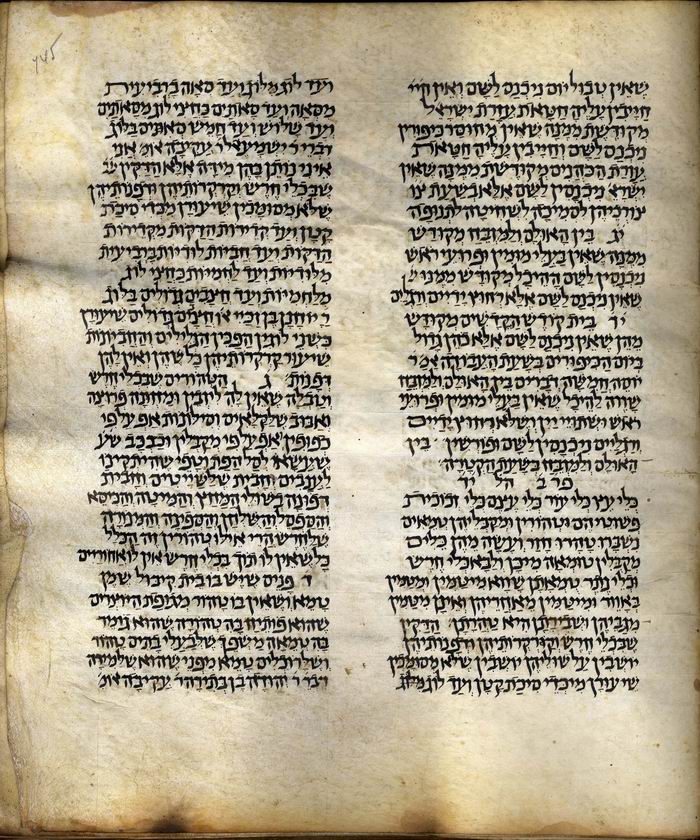 שאין טבול יום ניכנס לשם ואין חיי
חייבין עליה חטאת עזרת ישראל
מקודשת ממנה שאין מחוסר כיפורין
ניכנס לשם וחייבין עליה חטאת
עזרת הכהנים מקודשת ממנה שאין
ישרא ניכנסין לשם אלא בשעת צו
צורכיהן לסמיכה לשחיטה לתנופה
יג בין האולם ולמזבח מקודש
ממנה שאין בעלי מומין ופרועי ראש
ניכנסין לשם ההיכל מקודש ממנו ש
שאין ניכנס לשם אלא רחוץ ידיים ורגלים
יד בית קודש הקדשים מקודש
מהן שאין ניכנס לשם אלא כהן גדול
ביום הכיפורים בשעת העבודה אמר
יוסה חמשה דברים בין האולם ולמזבח
שווה להיכל שאין בעלי מומין ופרועי
ראש ושתויי יין ושלא רחוץ ידיים
ורגליים ניכנסין לשם ופורשין בין
האולם ולמזבח בשעת הקטרה
פר ב הל יד
כלי עץ כלי עור כלי עצם כלי זכוכית
פשוטיהם טהורין ומקבליהן טמאים
נשברו טהרו חזר ועשה מהן כלים
מקבלין טומאה מיכן ולבא כלי חרש
וכלי נתר טמאתן שווא מיטמין ומטמין
באוויר ומיטמין מאחריהן ואינן מטמין
מגביהן ושבירתן היא טהרתן הדקין
שבכלי חרש וקרקרותיהן ודפנותיהן
יושבין על שוליהן יושבין שלא מסומכין
שיעורן מיכדי סיכת קטן ועד לוג מלוג
ועד לוג מלוג ועד סאה ברביעית
מסאה ועד סאתים בחצי לוג מסאתים
ועד שלוש ועד חמיש סאתים בלוג
דברי ר ישמעעל ר עקיבה אומ אני
איני נותן בהן מידה אלא הדקין שב
שבכלי חרש וקרקרותיהן ודפנותיהן
שלא מסומכין שיעורן מכדי סיכת
קטן ועד קדירות הדקות מקדירות
הדקות ועד חביות לודיות ברביעית
מלודיות ועד לחמיות בחצי לוג
מלחמיות ועד חצבים גדולים בלוג
ר יוחנן בן זכיי או חצבים גדולים שיעורן
בשני לוגין הפכין הגלילים והחביונות
שיעור קרקרותיהן כל שהן ואין להן
דפנות ג הטהורים שבכלי חרש
וטבלה שאין לה ליזבין ומחותה פרוצה
ואבוב שלקלאים וסילונות אף על פי
כפופין אף על פי מקבלין וכבכב שע
שעשאו לסל הפת וטפי שהיתקינו
לענבים וחבית שלשייטים וחבית
דפונה בשולי המחץ והמיטה והכיסא
והספסל והשלחן והספינה והמנורה
שלחרש הרי אילו טהורין זה הכלל
כל שאין לו תוך בכלי חרש אין לו אחוריים
ד פנים שיש בו בית קיבול שמן
טמא ושאין בו טהור מגופת היוצרים
שהוא פותיח בה טהורה שהוא גומר
בה טמאה משפך שלבעלי בתים טהור
ושלרוכלים טמא מפני שהוא שלמידה
דבר ר יהודה בן בתירה ר עקיבה אומ